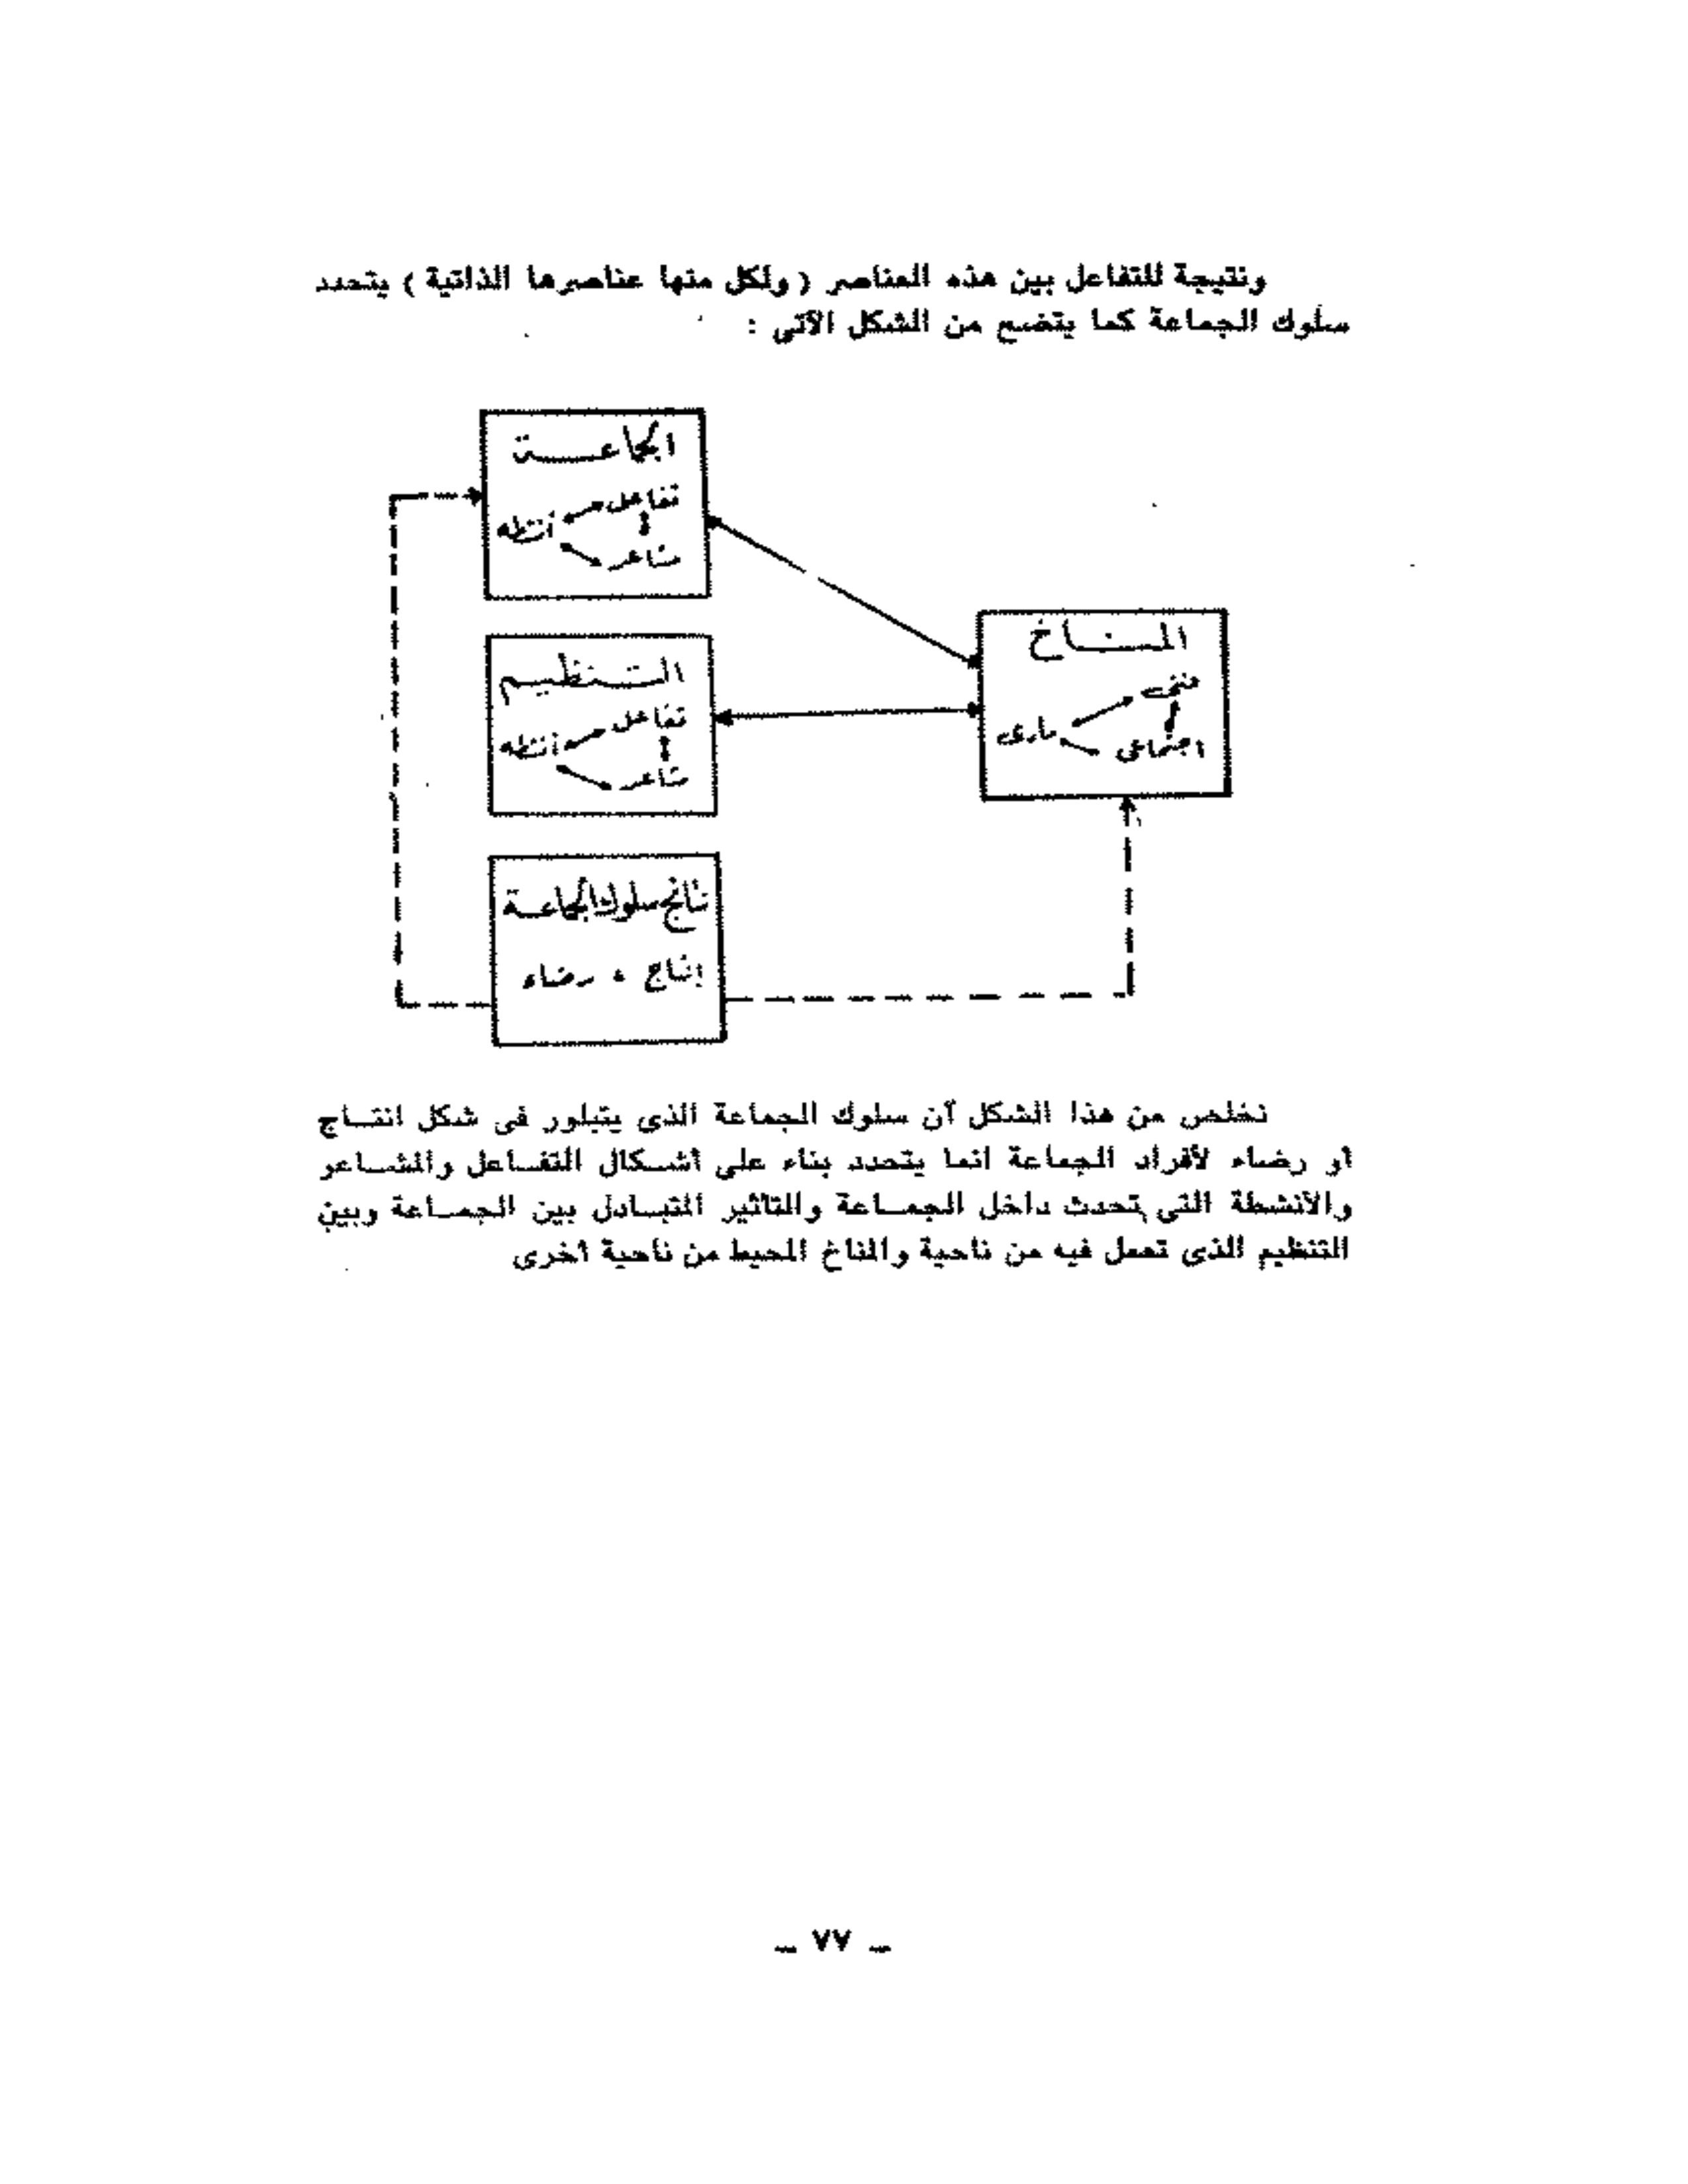 ونتيجة للتفاعل بين هذه العناصر ( ولكل منها عناصرها الذاتية ) يتحدد
سلوك الجماعة كما يتضح من الشكل الآتى :
الجماعة
تفاعل
أنشطه
مشاعر
المناخ
اجتماعى
مادى
التنظيم
تفاعل
أنشطه
مشاعر
ناتج سلوك الجماعة
إنتاج ، رضاء
نخلص من هذا الشكل أن سلوك الجماعة الذى يتبلور فى شكل انتاج
أو رضاء لأفراد الجماعة انما يتحدد بناء على أشكال التفاعل والمشاعر
والأنشطة التى تحدث داخل الجماعة والتأثير المتبادل بين الجماعة وبين
التنظيم الذى تعمل فيه من ناحية والمناخ المحيط من ناحية أخرى
ــ ٧٧ ــ